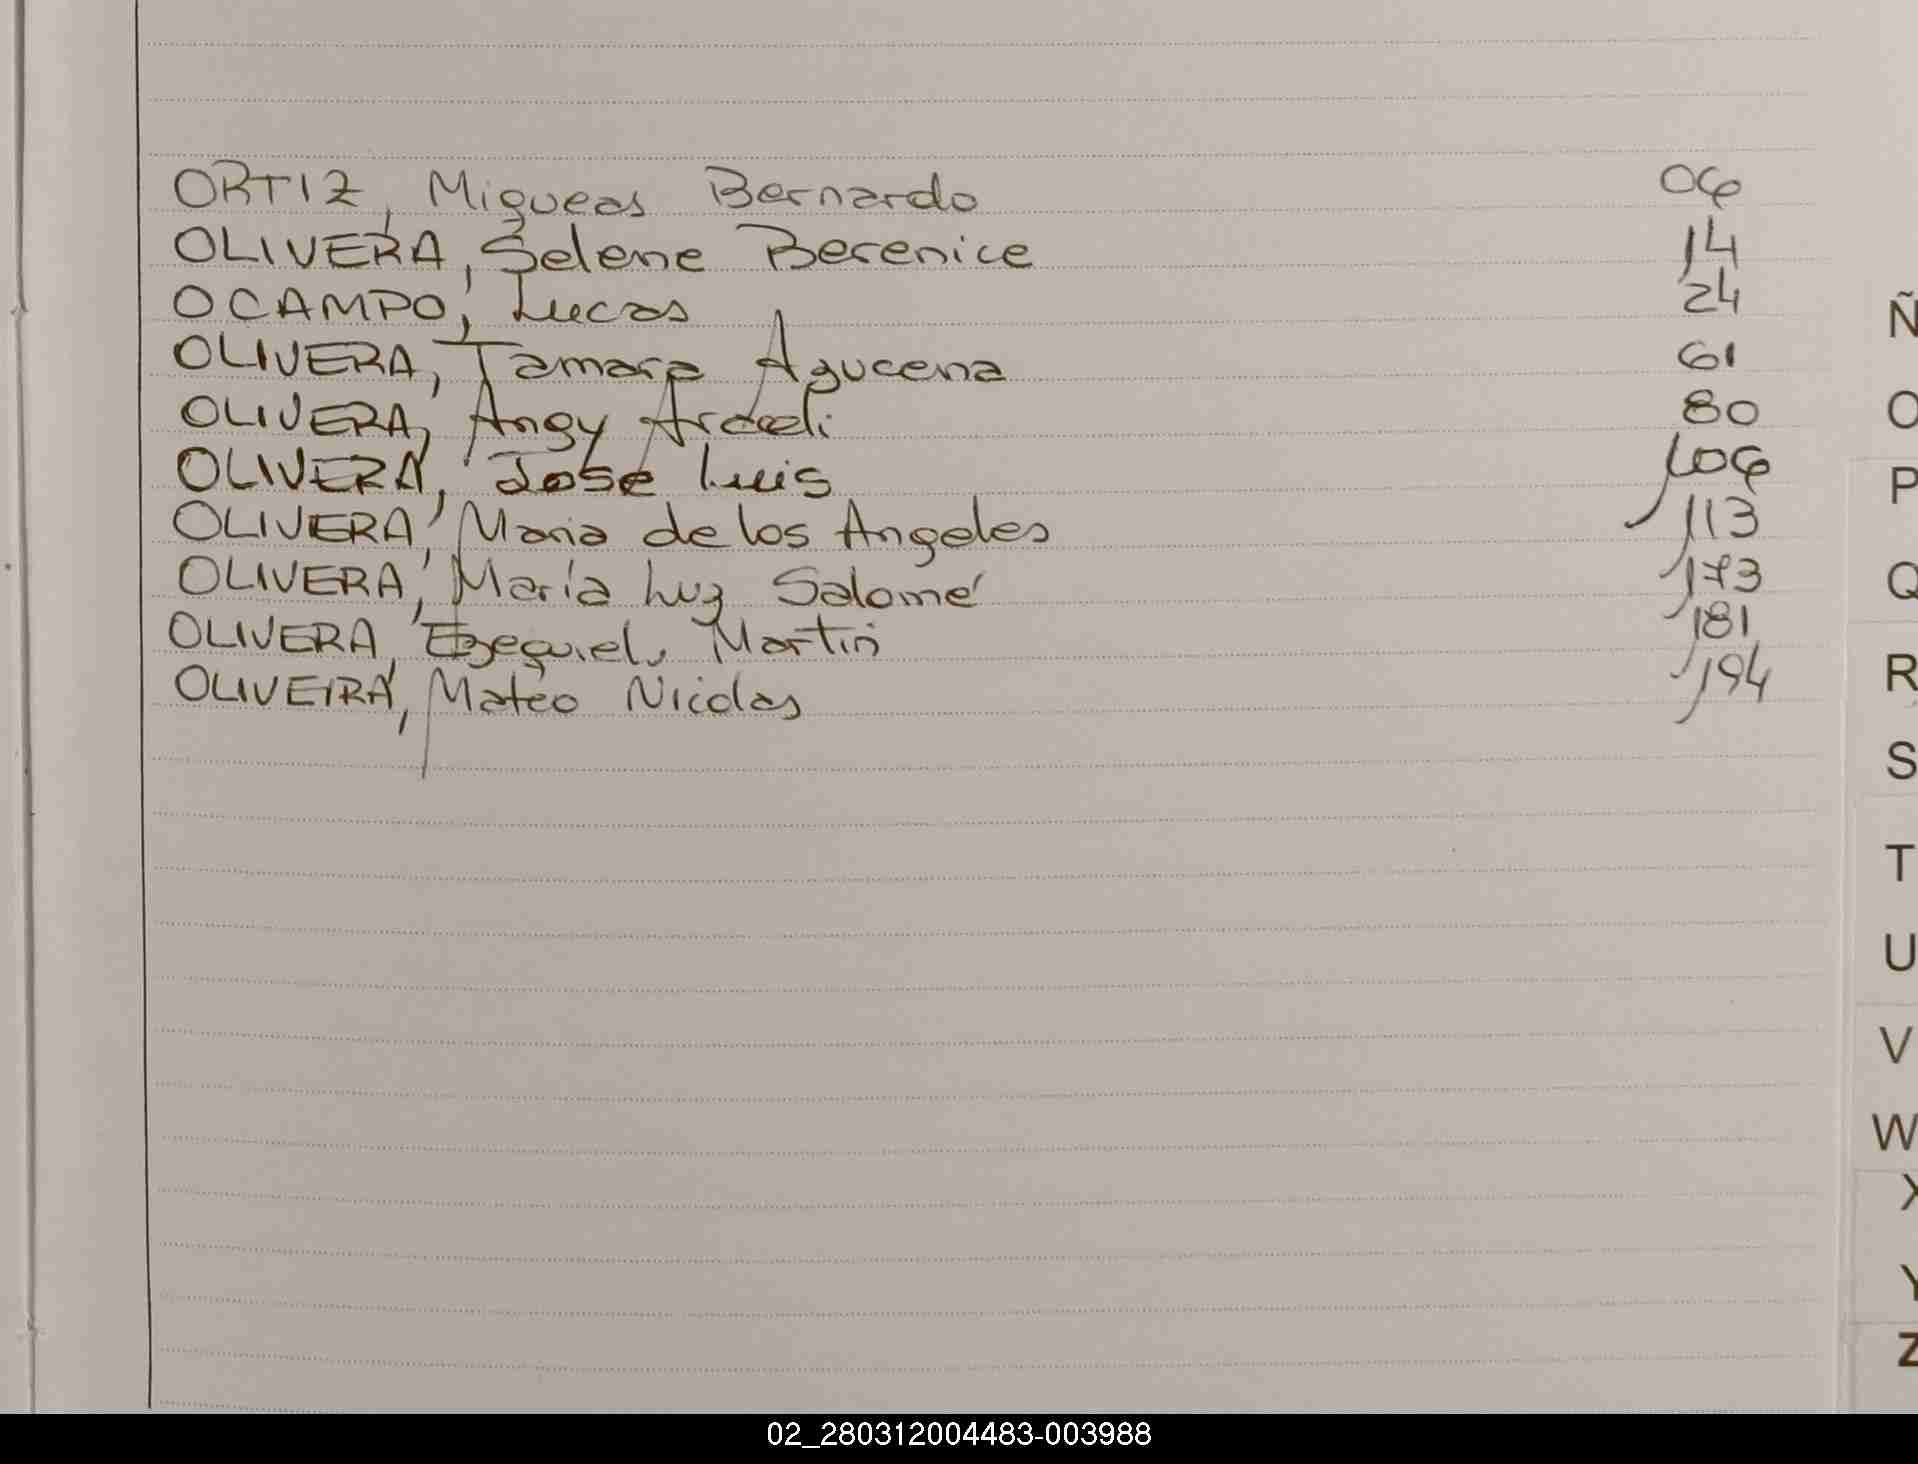 ORTIZ, Migueas Bernardo 06
OLIVERA, Selene Berenice 14
OCAMPO, Lucas 24
OLIVERA, Tamara Azucena 61
OLIVERA, Angy Araceli 80
OLIVERA, José Luis 106
OLIVERA, Maria de los Angeles 113
OLIVERA, María Luz Salomé 173
OLIVERA, Ezequiel Martin 181
OLIVEIRA, Mateo Nicolas 194
Ñ
O
P
Q
R
S
T
U
V
W
X
Y
Z
02_280312004483-003988